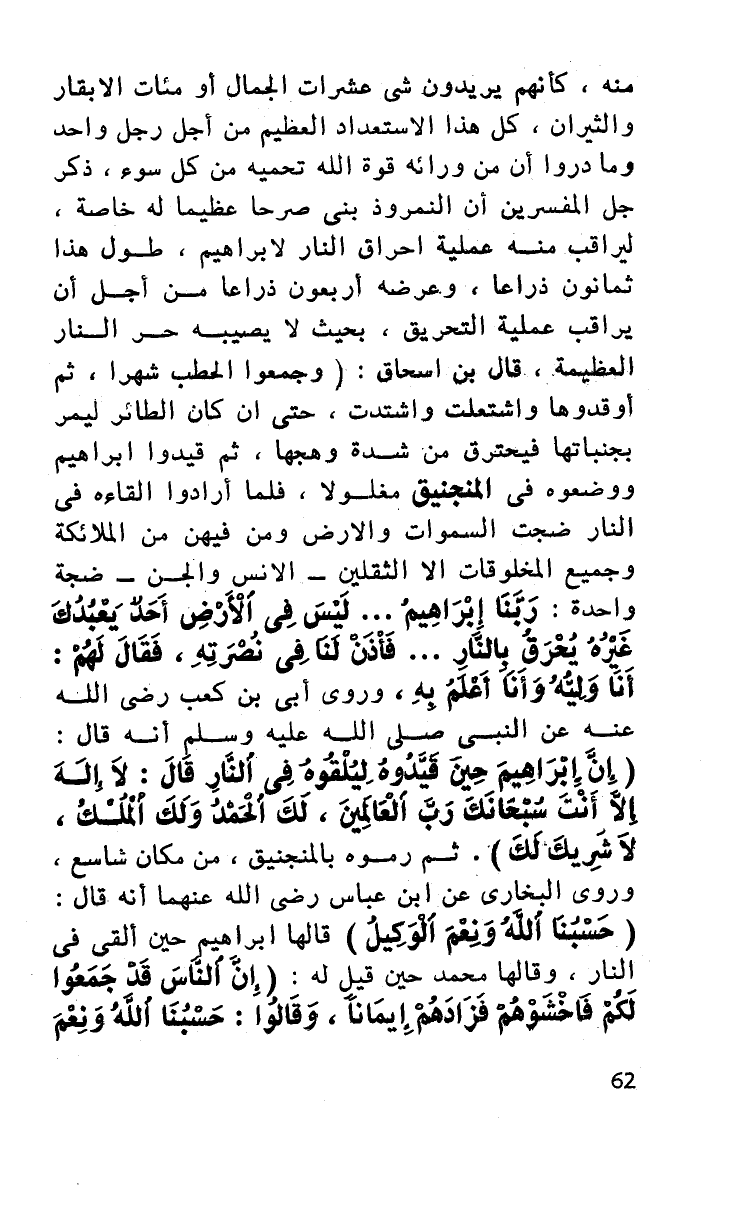 منه ، كأنهم يريدون شى عشرات الجمال أو مئات الابقار
والثيران ، كل هذا الاستعداد العظيم من أجل رجل واحد
وما دروا أن من ورائه قوة الله تحميه من كل سوء ، ذكر
جل المفسرين أن النمروذ بنى صرحا عظيما له خاصة ،
ليراقب منه عملية احراق النار لابراهيم ، طول هذا
ثمانون ذراعا ، وعرضه أربعون ذراعا من أجل أن
يراقب عملية التحريق ، بحيث لا يصيبه حر النار
العظيمة . قال بن اسحاق : ( وجمعوا الحطب شهرا ، ثم
أوقدوها واشتعلت واشتدت ، حتى ان كان الطائر ليمر
بجنباتها فيحترق من شدة وهجها ، ثم قيدوا ابراهيم
ووضعوه فى المنجنيق مغلولا ، فلما أرادوا القاءه فى
النار ضجت السموات والارض ومن فيهن من الملائكة
وجميع المخلوقات الا الثقلين ــ الانس والجن ــ ضجة
واحدة : رَبَّنَا إِبْرَاهِيمُ ... لَيْسَ فِى ٱلْأَرْضِ أَحَدٌ يَعْبُدُكَ
غَيْرُهُ يُحْرَقُ بِالنَّارِ ... فَأْذَنْ لَنَا فِى نُصْرَتِهِ ، فَقَالَ لَهُمْ :
أَنَا وَلِيُّهُ وَأَنَا أَعْلَمُ بِهِ ، وروى أبى بن كعب رضى الله
عنه عن النبى صلى الله عليه وسلم أنه قال :
( إِنَّ إِبْرَاهِيمَ حِينَ قَيَّدُوهُ لِيُلْقُوهُ فِى ٱلنَّارِ قَالَ : لاَ إِلَهَ
إِلاَّ أَنْتَ سُبْحَانَكَ رَبَّ ٱلْعَالَمِينَ ، لَكَ ٱلْحَمْدُ وَلَكَ ٱلْمُلْكُ ،
لاَ شَرِيكَ لَكَ ) . ثم رموه بالمنجنيق ، من مكان شاسع ،
وروى البخارى عن ابن عباس رضى الله عنهما أنه قال :
( حَسْبُنَا ٱللَّهُ وَنِعْمَ ٱلْوَكِيلُ ) قالها ابراهيم حين ألقى فى
النار ، وقالها محمد حين قيل له : ( إِنَّ ٱلنَّاسَ قَدْ جَمَعُوا
لَكُمْ فَاخْشَوْهُمْ فَزَادَهُمْ إِيمَاناً ، وَقَالُوا : حَسْبُنَا ٱللَّهُ وَنِعْمَ
62